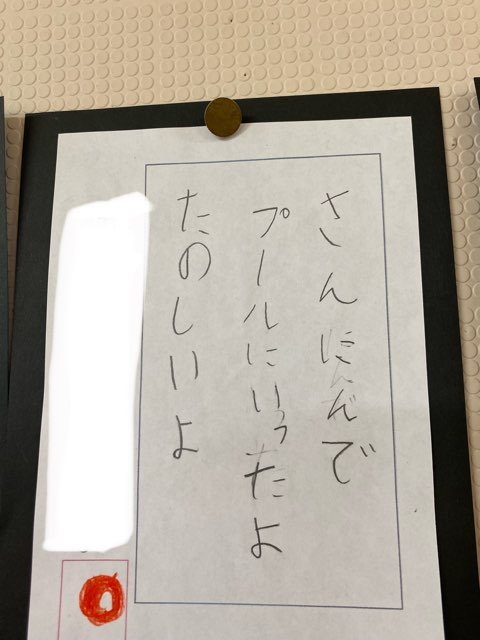 さんにんで
プールにいったよ
たのしいよ